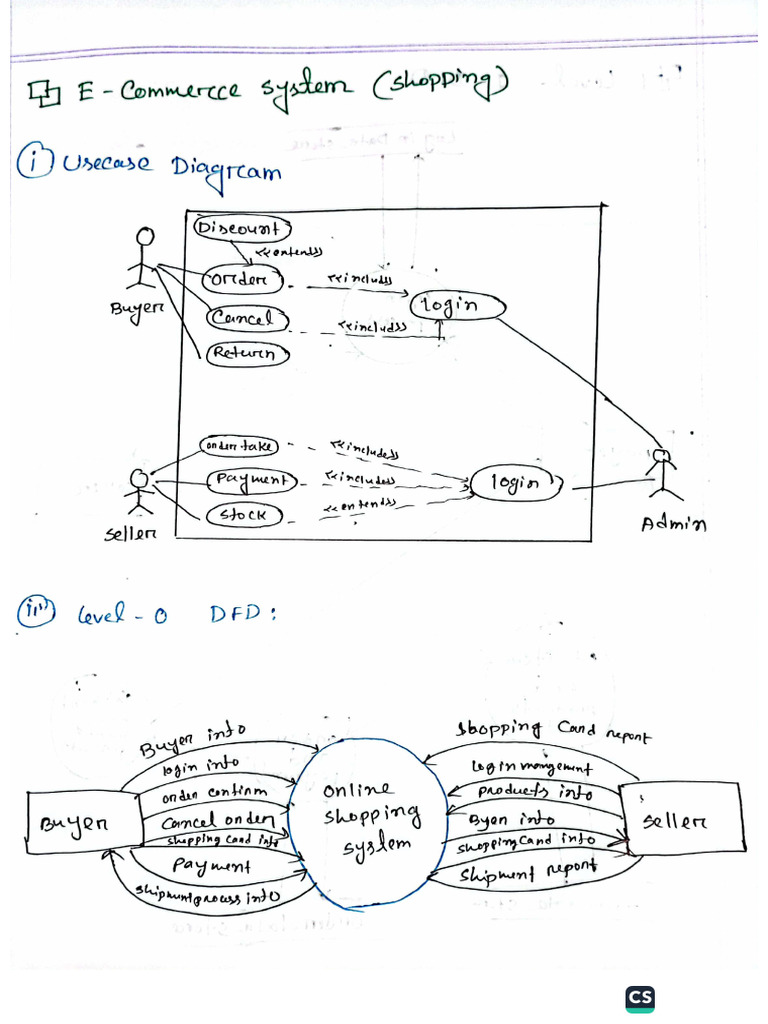 E-Commercce system (shopping)
i Usecase Diagrcam
Discount
<<extends>>
Order
<<includs>>
login
Buyer
Cancel
<<includs>>
Return
order take
<<includes>>
Payment
<<includs>>
login
stock
<<extends>>
Seller
Admin
Level-0 DFD:
Buyer info
login info
order confirm
Cancel order
shopping Card info
Payment
shipment process info
Buyer
online
shopping
system
Shopping Card report
Login mangement
Products info
shopping Card info
Shipment report
Seller
CS